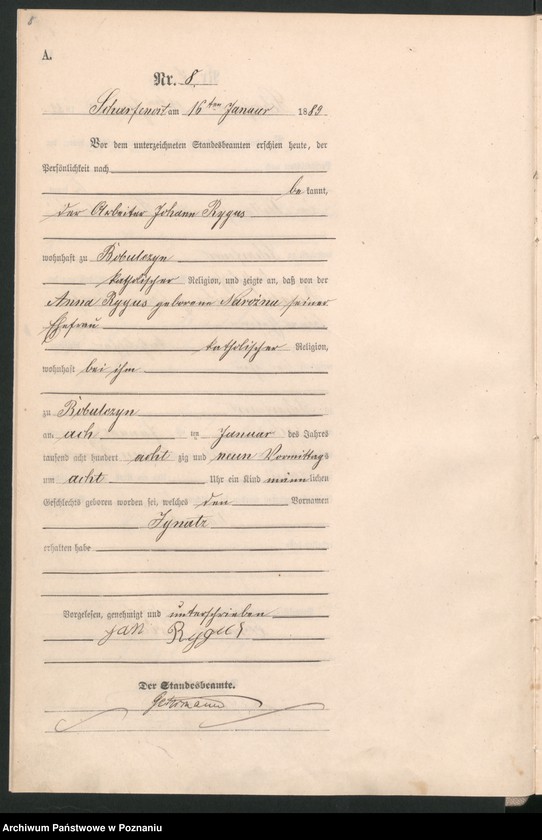 8
A.
Nr. 8.
Scharfenort am 16ten Januar 1889
Vor dem unterzeichneten Standesbeamten erschien heute, der
Persönlichkeit nach
be kannt,
der Arbeiter Johann Rygus
wohnhaft zu Bobulczyn
katholischer Religion, und zeigte an, daß von der
Anna Rygus geborene Narożna seiner
Ehefrau
katholischer Religion,
wohnhaft bei ihm
zu Bobulczyn
am ach im Januar des Jahres
tausend acht hundert acht zig und neun Vormittags
um acht Uhr ein Kind männlichen
Geschlechts geboren worden sei, welches den Vornamen
Ignatz
erhalten habe
Vorgelesen, genehmigt und unterschrieben
Jan Rygus
Der Standesbeamte.
Archiwum Państwowe w Poznaniu